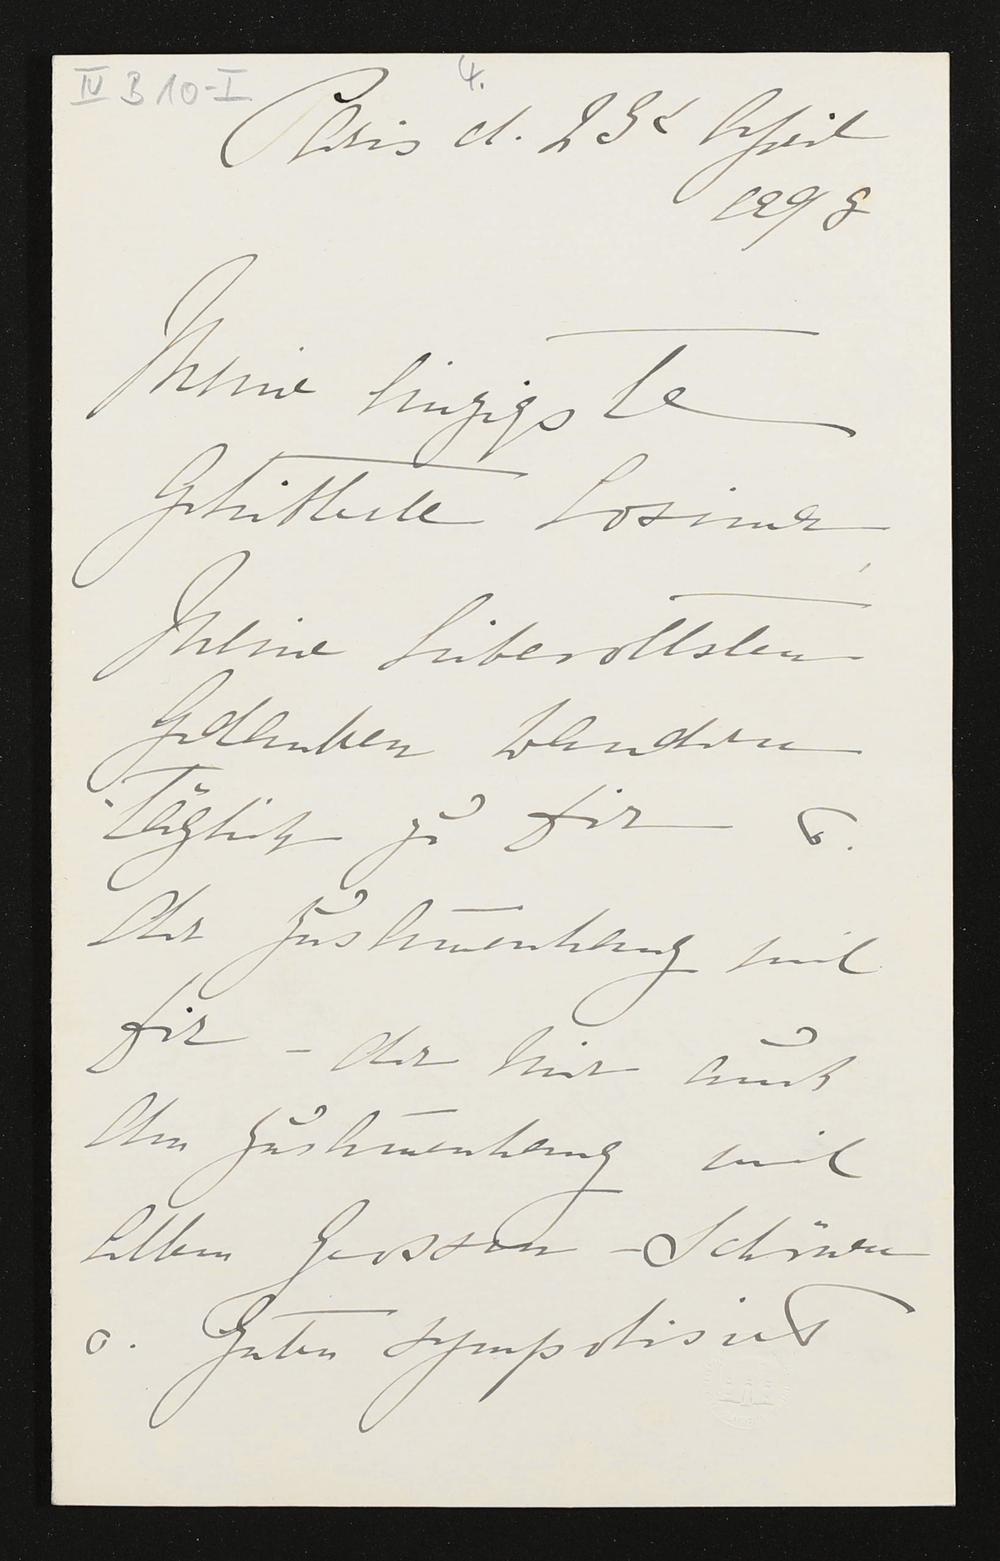 IV B 10-I
4.
Paris d. 23t April
1898
Meine einzigste
Geliebteste Cosima,
Meine liebevollsten
Gedanken wandern
täglich zu Dir u.
der Zusam̅enhang mit
Dir – der mir auch
den Zusam̅enhang mit
allem Grossen – Schönen
u. Guten symbolisiert